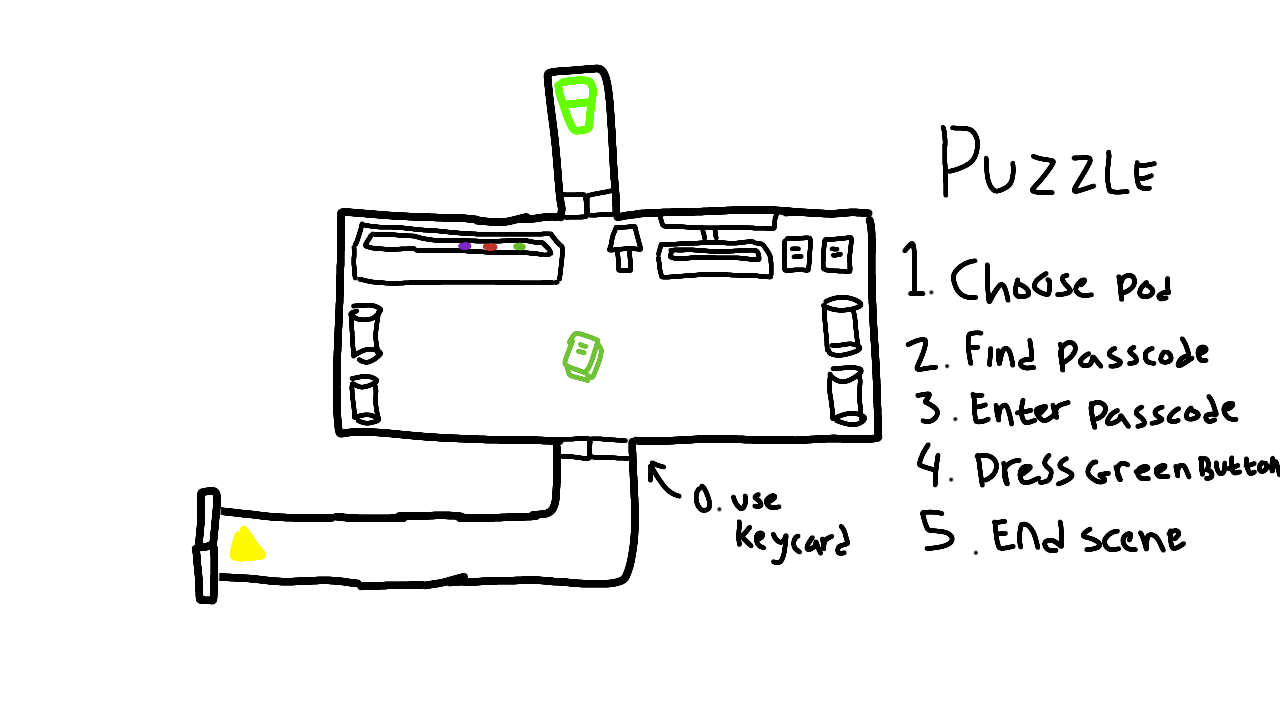 PUZZLE
1. Choose pod
2. Find passcode
3. Enter passcode
4. Press Green Button
5. End scene
0. use
keycard